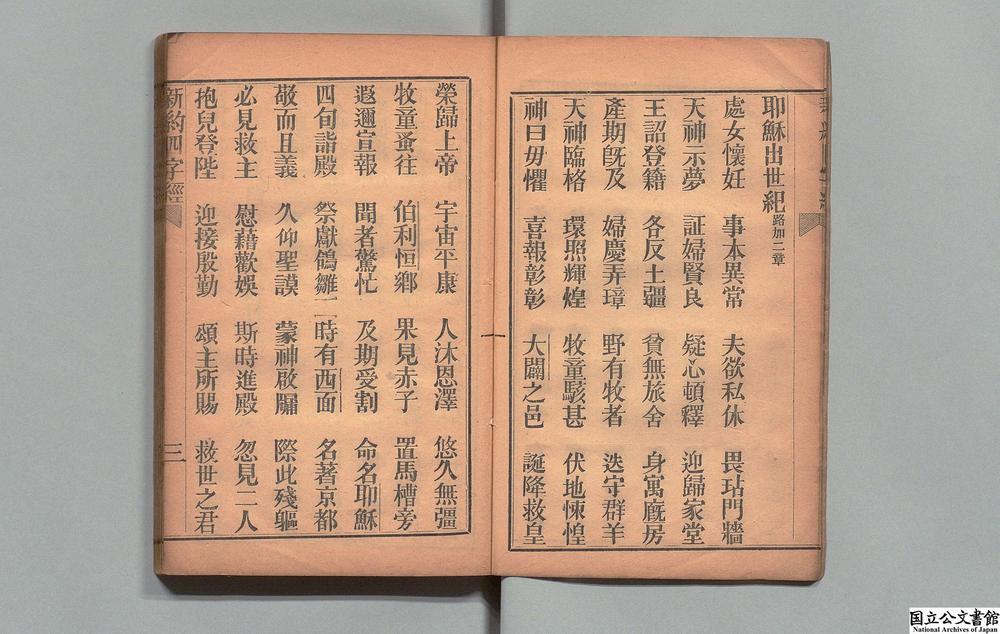 耶穌出世紀路加二章
處女懷妊 事本異常 夫欲私休 畏玷門牆
天神示夢 証婦賢良 疑心頓釋 迎歸家堂
王詔登籍 各反土疆 貧無旅舍 身寓廐房
產期旣及 婦慶弄璋 野有牧者 迭守群羊
天神臨格 環照輝煌 牧童駭甚 伏地悚惶
神曰毋懼 喜報彰彰 大闢之邑 誕降救皇
榮歸上帝 宇宙平康 人沐恩澤 悠久無疆
牧童蚤往 伯利恒鄉 果見赤子 置馬槽旁
遐邇宣報 聞者驚忙 及期受割 命名耶穌
四旬詣殿 祭獻鴿雛 時有西面 名著京都
敬而且義 久仰聖謨 蒙神啟牖 際此殘軀
必見救主 慰藉歡娛 斯時進殿 忽見二人
抱兒登陛 迎接殷勤 頌主所賜 救世之君
新約四字經
三
国立公文書館
National Archives of Japan